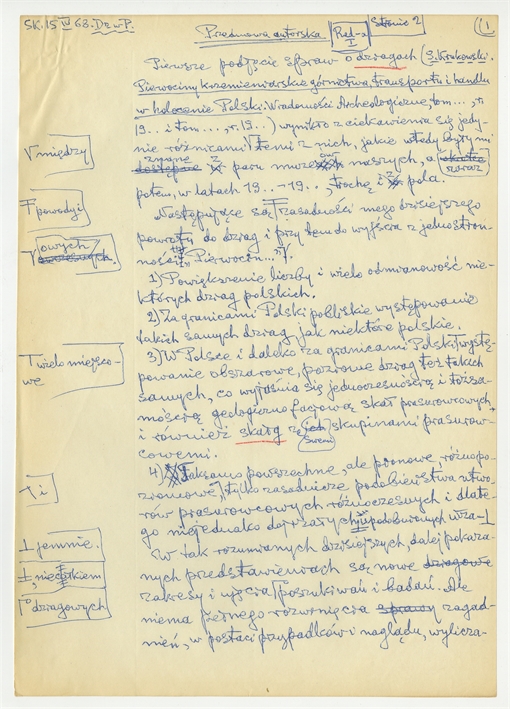 SK. 15 IV 68. Dz. w P.
Przedmowa autorska
Red-a I
Stronie 2
1
Pierwsze podjęcie spraw o dzragach (S. Krukowski.
Pierwociny krzemieniarskie górnictwa, transportu i handlu
w holocenie Polski. Wiadomości Archeologiczne, tom..., r.
19.. i tom..., r. 19..) wynikło z ciekawienia się jedy-
nie różnicami temi z nich, jakie wtedy były mi
znane z paru naszych, a zaraz
potem, w latach 19..-19.., trochę i z pola.
Następujące są zasadności mego dzisiejszego
powrotu do dzrag i przy tem do wyjścia z jednostron-
ności "Pierwocin...".
1) Powiększenie liczby i wielo odmianowość nie-
których dzrag polskich.
2) Za granicami Polski pobliskie występowanie
takich samych dzrag jak niektóre polskie.
3) W Polsce i daleko za granicami Polski wystę-
powanie obszarowe, poziome dzrag też takich
samych, co wyjaśnia się jednoczesnością i tożsa-
mością geologiczno facjową skał prasurowcowych,
i również skałg z ich skupinami prasurow-
cowemi.
4) Taksamo powszechne, ale pionowe, różnopo-
ziomowe, tylko zasadnicze podobieństwa utwo-
rów prasurowcowych różnoczesnych i dlate-
go niejednako dojrzałych podobnych wza-
W tak rozumianych dzisiejszych, dalej pokaza-
nych przedstawieniach są nowe
zakresy i ujęcia poszukiwań i badań. Ale
niema pełnego rozwinięcia zagad-
nień, w postaci przypadków i naglądu, wylicza-
V między
powodzi
owych
wielo miejsco-
we
i
jemnie.
dzragowych